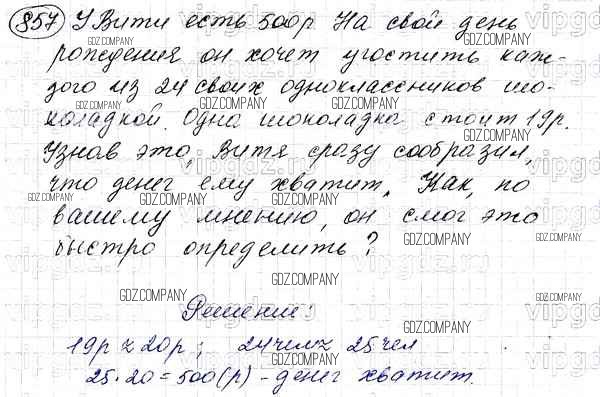 857 У Вити есть 500р. На свой день
рождения он хочет угостить каж-
дого из 24 своих одноклассников шо-
коладкой. Одна шоколадка стоит 19р.
Узнав это, Витя сразу сообразил,
что денег ему хватит. Как, по
вашему мнению, он смог это
быстро определить?
Решение:
19р ≈ 20р; 24чел ≈ 25чел
25·20=500(р) - денег хватит.